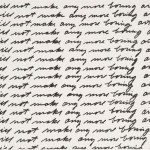 ill not make any more boring ar
ill not make any more boring ar
ill not make any more boring ar
ill not make any more boring ar
ill not make any more boring a
ill not make any more boring a
ill not make any more boring a
ill not make any more boring a
ill not make any more boring a
ill not make any more boring a
ill not make any more boring a